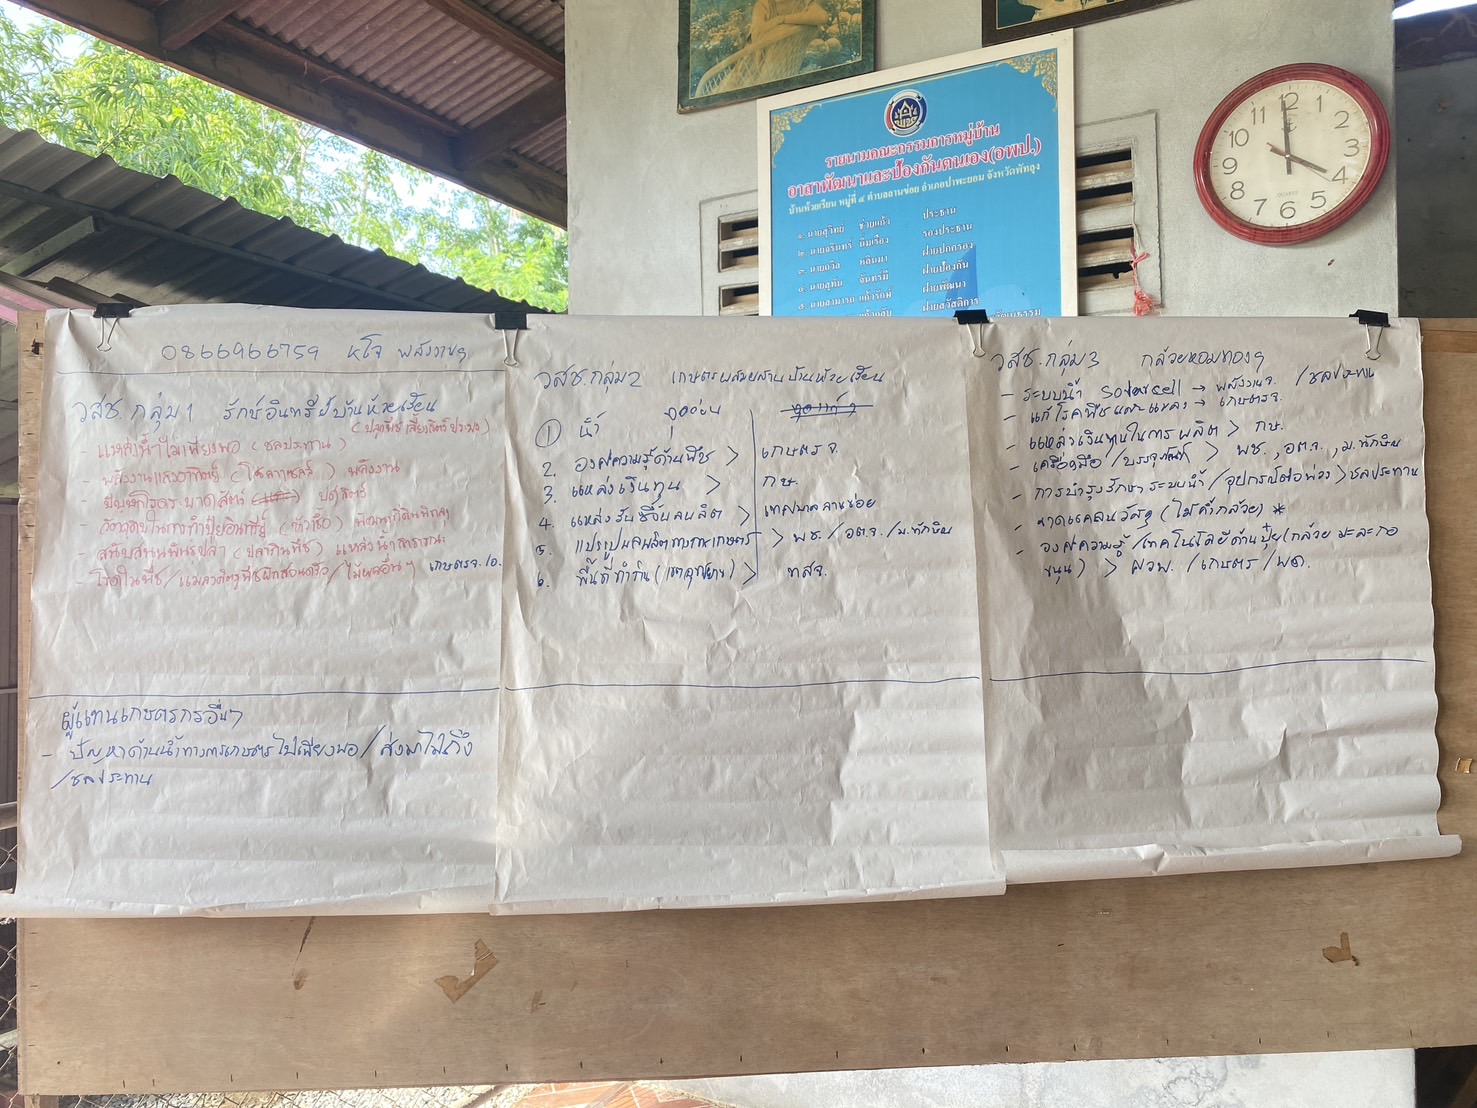 รายนามคณะกรรมการหมู่บ้าน
อาสาพัฒนาและป้องกันตนเอง(อพป.)
บ้านห้วยเรียน หมู่ที่ ๔ ตำบลลานข่อย อำเภอป่าพะยอม จังหวัดพัทลุง
๑. นายสุวิทย์ ช่วยแก้ว ประธาน
๒. นายจรินทร์ นิ่มเรือง รองประธาน
๓. นายถวิล หลินมา ฝ่ายปกครอง
๔. นายสุทิน จันทรมี ฝ่ายป้องกัน
๕. นายสามารถ แก้วรักษ์ ฝ่ายพัฒนา
ฝ่ายสวัสดิการ
12 1 2 3 4 5 6 7 8 9 10 11
QUARTZ
0866966759 หโจ พลังงานฯ
วสช. กลุ่ม 1 รักษ์อินทรีย์บ้านห้วยเรียน
(ปลูกพืช เลี้ยงสัตว์ ประมง)
- แหล่งน้ำไม่เพียงพอ (ชลประทาน)
- พลังงานแสงอาทิตย์ (โซลาเซลล์) พลังงาน
- ปัญหาโรคระบาดสัตว์ ปศุสัตว์
- วัตถุดิบในการทำปุ๋ยอินทรีย์ (หัวเชื้อ)
- สนับสนุนพันธุ์ปลา (ปลากินพืช) แหล่งน้ำสาธารณะ
- โรคในพืช / แมลงศัตรูพืช / ไม้ผลอื่นๆ เกษตรจ./อ.
ผู้แทนเกษตรกรอื่นๆ
- ปัญหาด้านน้ำทางการเกษตรไม่เพียงพอ / ส่งมาไม่ถึง
/ ชลประทาน
วสช. กลุ่ม 2 เกษตรผสมผสานบ้านห้วยเรียน
① น้ำ
2. องค์ความรู้ด้านพืช > เกษตรจ.
3. แหล่งเงินทุน > กษ.
4. แหล่งรับซื้อผลผลิต > เทศบาลลานข่อย
5. แปรรูปผลผลิตทางการเกษตร > พช. / อตจ. / ม.ทักษิณ
6. พื้นที่ทำกิน (เขตอุทยาน) > ทสจ.
วสช. กลุ่ม 3 กล้วยหอมทองฯ
- ระบบน้ำ Solar sell → พลังงานจ. / ชลประทาน
- แก้โรคพืชและแมลง → เกษตรจ.
- แหล่งเงินทุนในการผลิต > กษ.
- เครื่องมือ / บรรจุภัณฑ์ > พช. , อตจ. , ม.ทักษิณ
- การบำรุงรักษาระบบน้ำ / อุปกรณ์ต่อพ่วง > ชลประทาน
- ขาดแคลนวัสดุ (ไม้ค้ำกล้วย) *
- องค์ความรู้ / เทคโนโลยีด้านปุ๋ย (กล้วย มะละกอ
ขนุน) > ศวพ. / เกษตร / พด.